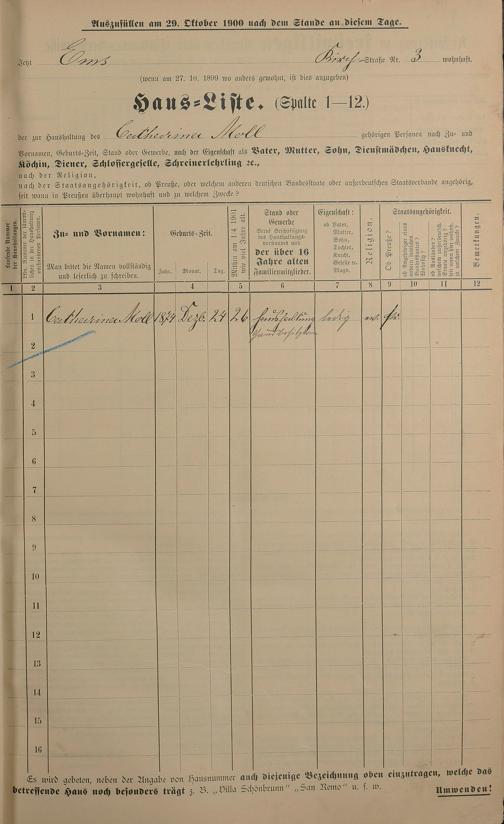 Auszufüllen am 29. Oktober 1900 nach dem Stande an diesem Tage.
Jetzt Ems Kirch-Straße Nr. 3 wohnhaft.
(wenn am 27. 10. 1899 wo anders gewohnt, ist dies anzugeben)
Haus-Liste. (Spalte 1—12.)
der zur Haushaltung des Catharina Moll gehörigen Personen nach Zu- und
Vornamen, Geburts-Zeit, Stand oder Gewerbe, nach der Eigenschaft als Vater, Mutter, Sohn, Dienstmädchen, Hausknecht,
Köchin, Diener, Schlossergeselle, Schreinerlehrling ꝛc.,
nach der Religion,
nach der Staatsangehörigkeit, ob Preuße, oder welchem anderen deutschen Bundesstaate oder außerdeutschen Staatsverbande angehörig,
seit wann in Preußen überhaupt wohnhaft und zu welchem Zwecke?
Zu- und Vornamen:
Man bittet die Namen vollständig
und leserlich zu schreiben.
Geburts-Zeit.
Jahr. Monat. Tag.
Mithin am 1.4.1901
wie viel Jahre alt.
Stand oder
Gewerbe
der über 16
Jahre alten
Familienmitglieder.
Eigenschaft:
ob Vater,
Mutter,
Sohn,
Tochter,
Knecht,
Geselle ꝛc.
Magd.
Religion.
Staatsangehörigkeit.
Ob Preuße?
Bemerkungen.
1 2 3 4 5 6 7 8 9 10 11 12
1 Catharina Moll 1874 Dezb. 24 26 ledig ev.
2
3
4
5
6
7
8
9
10
11
12
13
14
15
16
Es wird gebeten, neben der Angabe von Hausnummer auch diejenige Bezeichnung oben einzutragen, welche das
betreffende Haus noch besonders trägt z. B. „Villa Schönbrunn" „San Remo" u. s. w.
Umwenden!